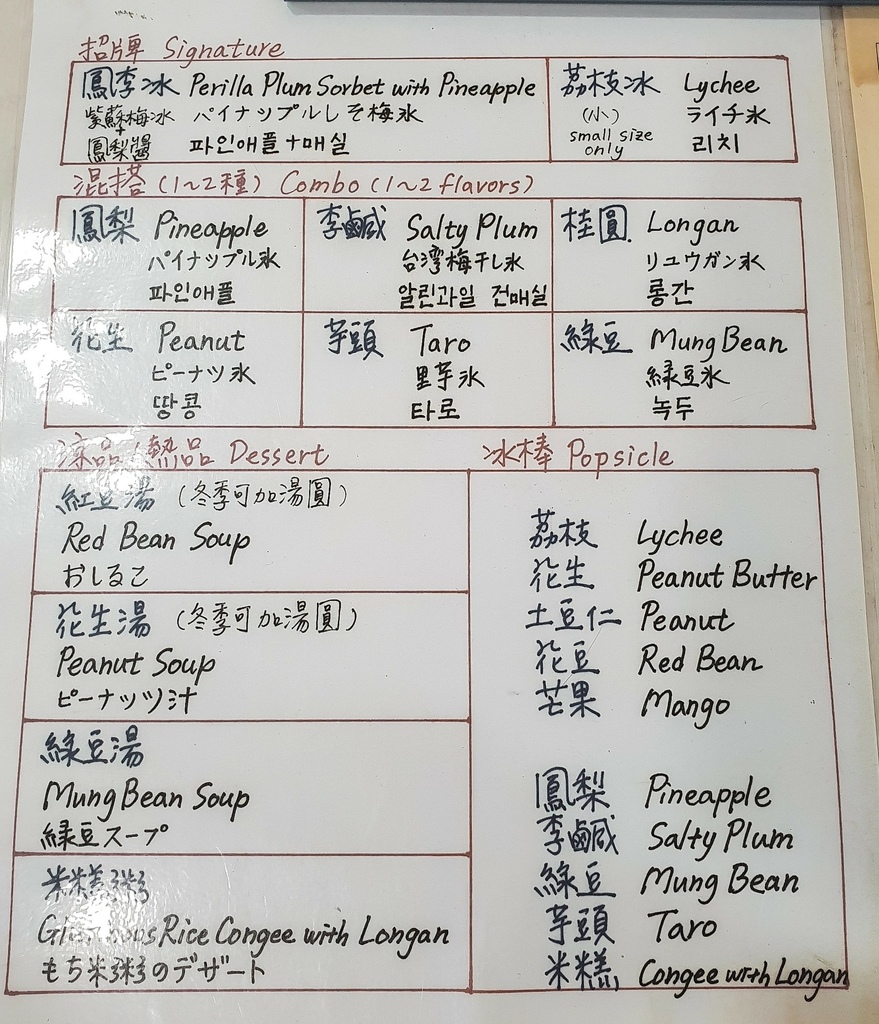 招牌 Signature
鳳李冰 Perilla Plum Sorbet with Pineapple
紫蘇梅冰 パイナップルしそ梅氷
+
鳳梨醬 파인애플+매실
荔枝冰 Lychee
(小) ライチ氷
small size only 리치
混搭 (1~2種) Combo (1~2 flavors)
鳳梨 Pineapple
パイナップル氷
파인애플
李鹹 Salty Plum
台湾梅干し氷
알린과일 건매실
桂圓 Longan
リュウガン氷
롱간
花生 Peanut
ピーナツ氷
땅콩
芋頭 Taro
里芋氷
타로
綠豆 Mung Bean
緑豆氷
녹두
涼品/熱品 Dessert
紅豆湯 (冬季可加湯圓)
Red Bean Soup
おしるこ
花生湯 (冬季可加湯圓)
Peanut Soup
ピーナッツ汁
綠豆湯
Mung Bean Soup
緑豆スープ
米糕粥
Glutinous Rice Congee with Longan
もち米粥のデザート
冰棒 Popsicle
荔枝 Lychee
花生 Peanut Butter
土豆仁 Peanut
花豆 Red Bean
芒果 Mango
鳳梨 Pineapple
李鹹 Salty Plum
綠豆 Mung Bean
芋頭 Taro
米糕 Congee with Longan